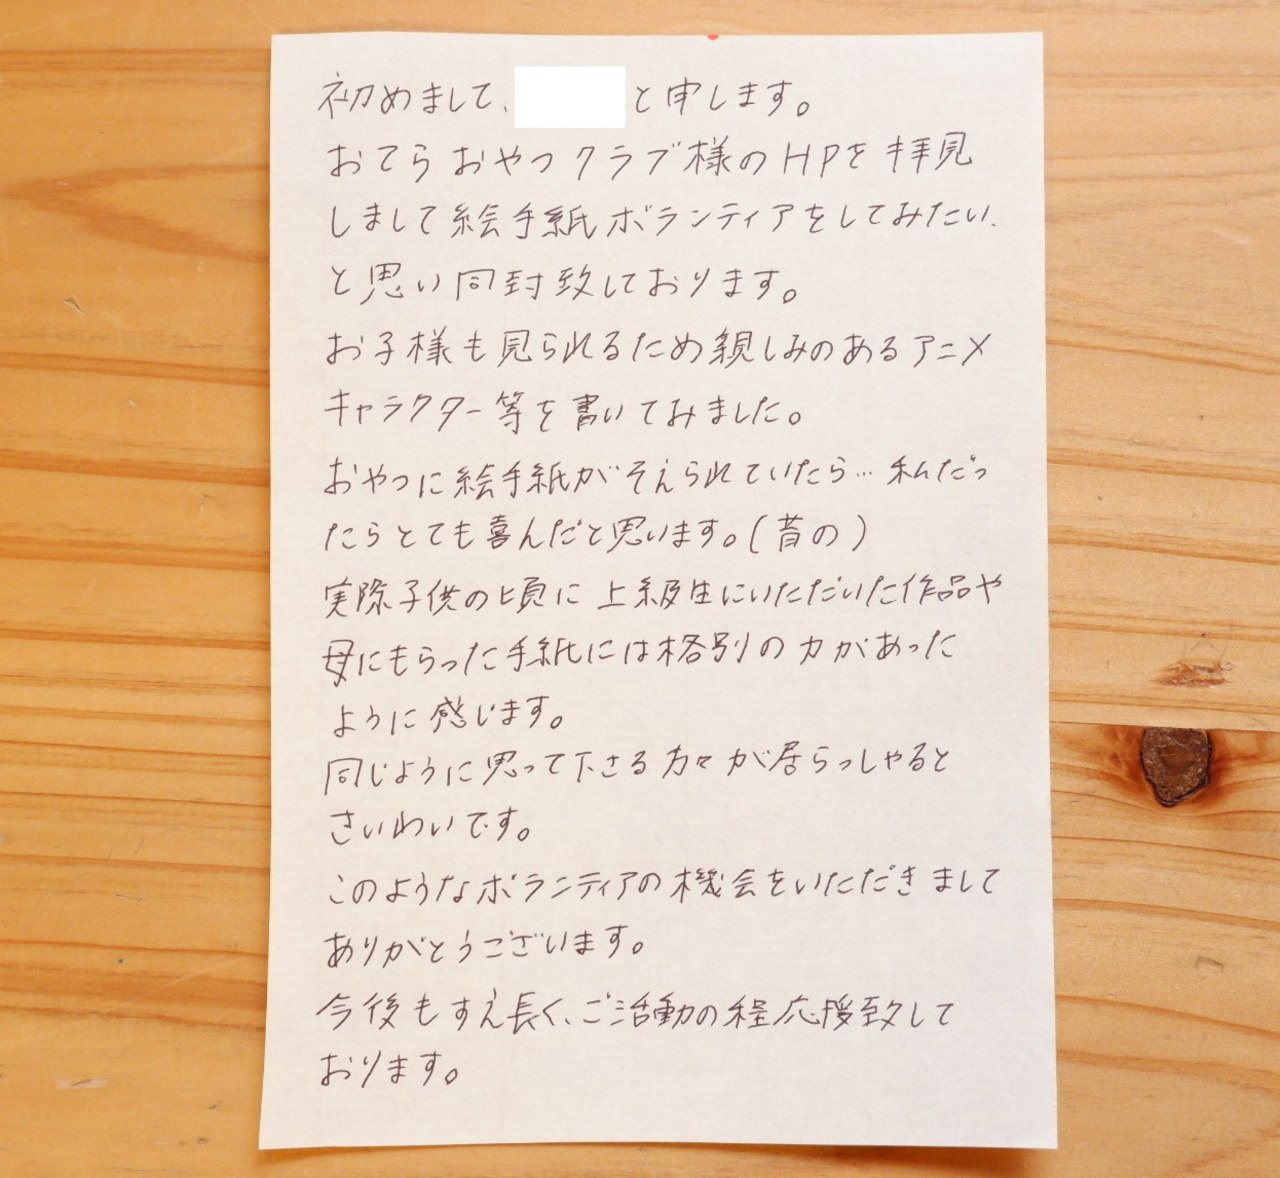 初めまして、と申します。
おてらおやつクラブ様のHPを拝見
しまして絵手紙ボランティアをしてみたい、
と思い同封致しております。
お子様も見られるため親しみのあるアニメ
キャラクター等を書いてみました。
おやつに絵手紙がそえられていたら…私だっ
たらとても喜んだと思います。(昔の)
実際子供の頃に上級生にいただいた作品や
母にもらった手紙には格別の力があった
ように感じます。
同じように思って下さる方々が居らっしゃると
さいわいです。
このようなボランティアの機会をいただきまして
ありがとうございます。
今後もすえ長く、ご活動の程応援致して
おります。